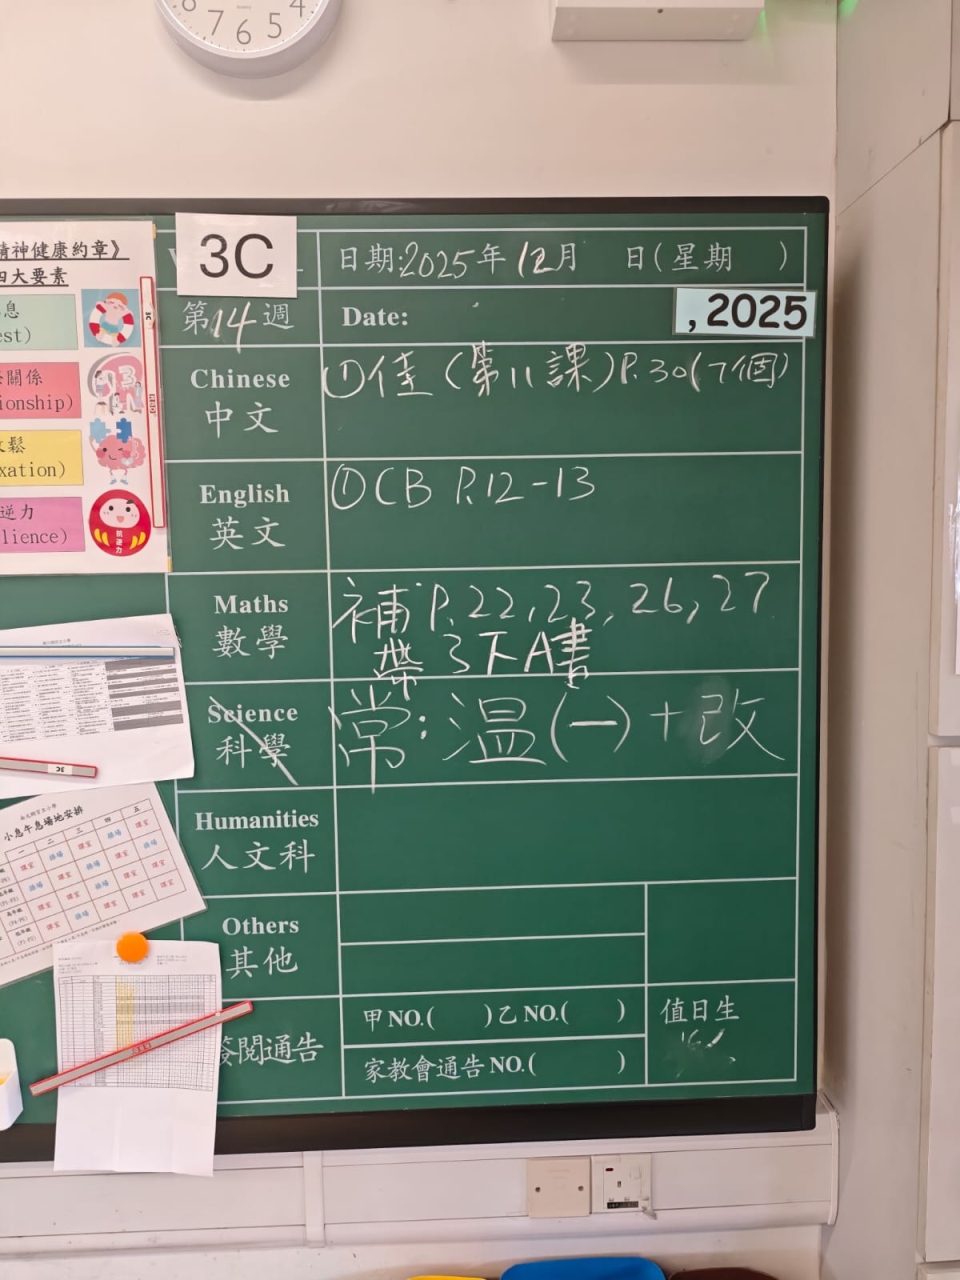 7 6 5
精神健康約章》
四大要素
3C
日期:2025年12月 日(星期 )
第14週
Date:
, 2025
息
est)
關係
ionship)
鬆
xation)
逆力
lience)
Chinese
中文
①佳(第11課)P.30(7個)
English
英文
①CB P.12-13
Maths
數學
補P.22,23,26,27
帶3下A書
Science
科學
常:溫(一)+改
Humanities
人文科
Others
其他
簽閱通告
甲NO.( )乙NO.( )
家教會通告NO.( )
值日生
小息午息場地安排
一 二 三 四 五
3C